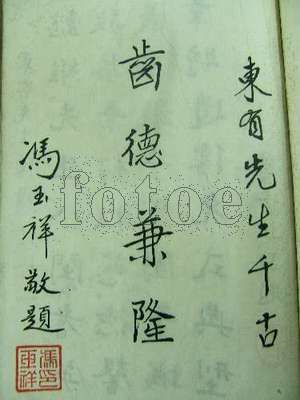 東有先生千古
齒德兼隆
馮玉祥敬題
馮玉祥印
fotoe